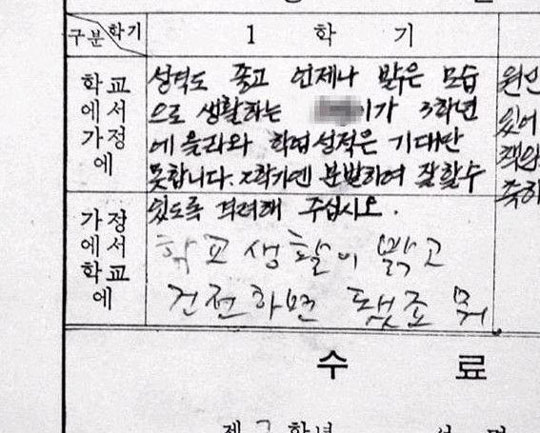 구분 학기
1 학 기
학교에서 가정에
성격도 좋고 언제나 밝은 모습
으로 생활하는 이가 3학년
에 올라와 학업성적은 기대만
못합니다. 2학기엔 분발하여 잘 할 수
있도록 격려해 주십시오.
원인
있어
책임
축하
가정에서 학교에
학교생활이 밝고
건전하면 됐죠 뭐
수 료